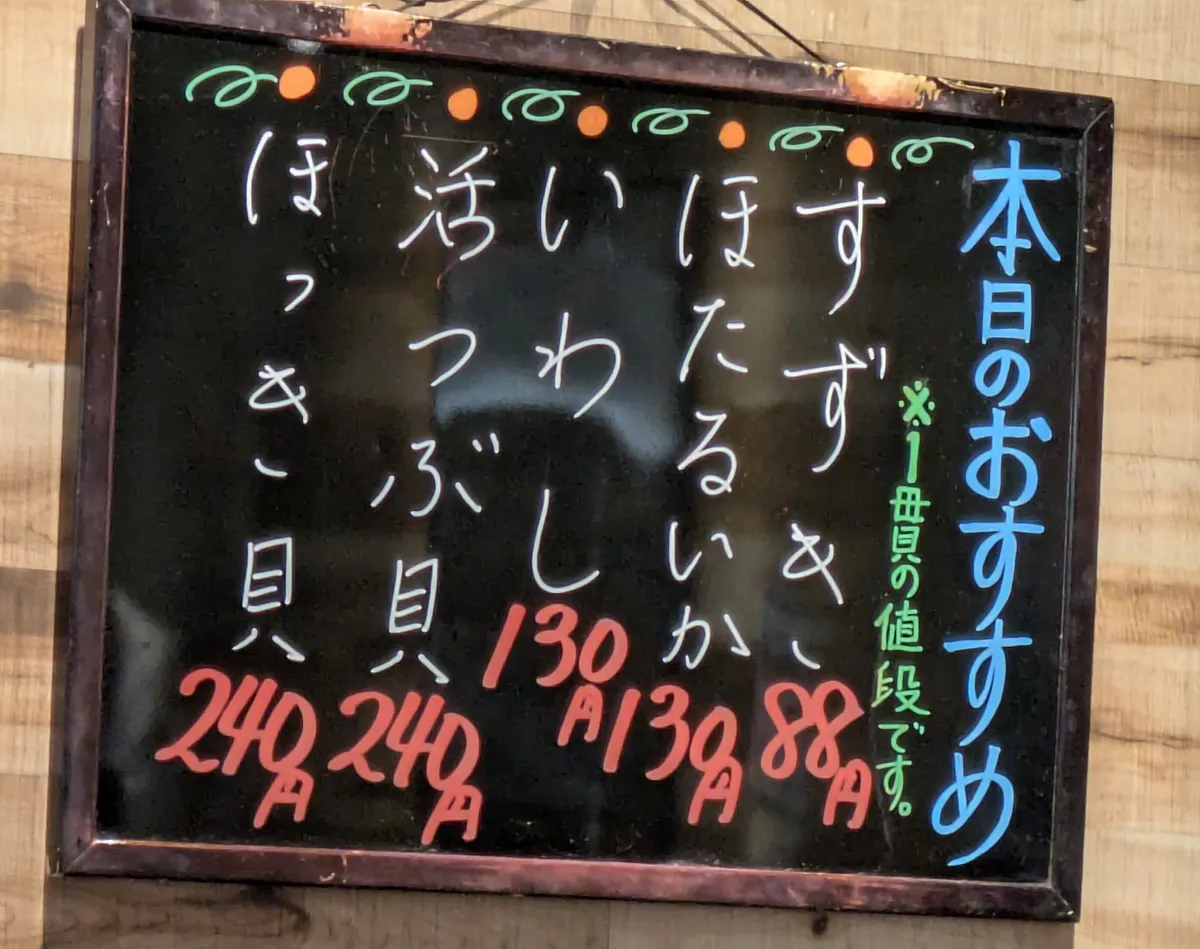 本日のおすすめ
※1貫の値段です。
すずき 88円
ほたるいか 130円
いわし 130円
活つぶ貝 240円
ほっき貝 240円